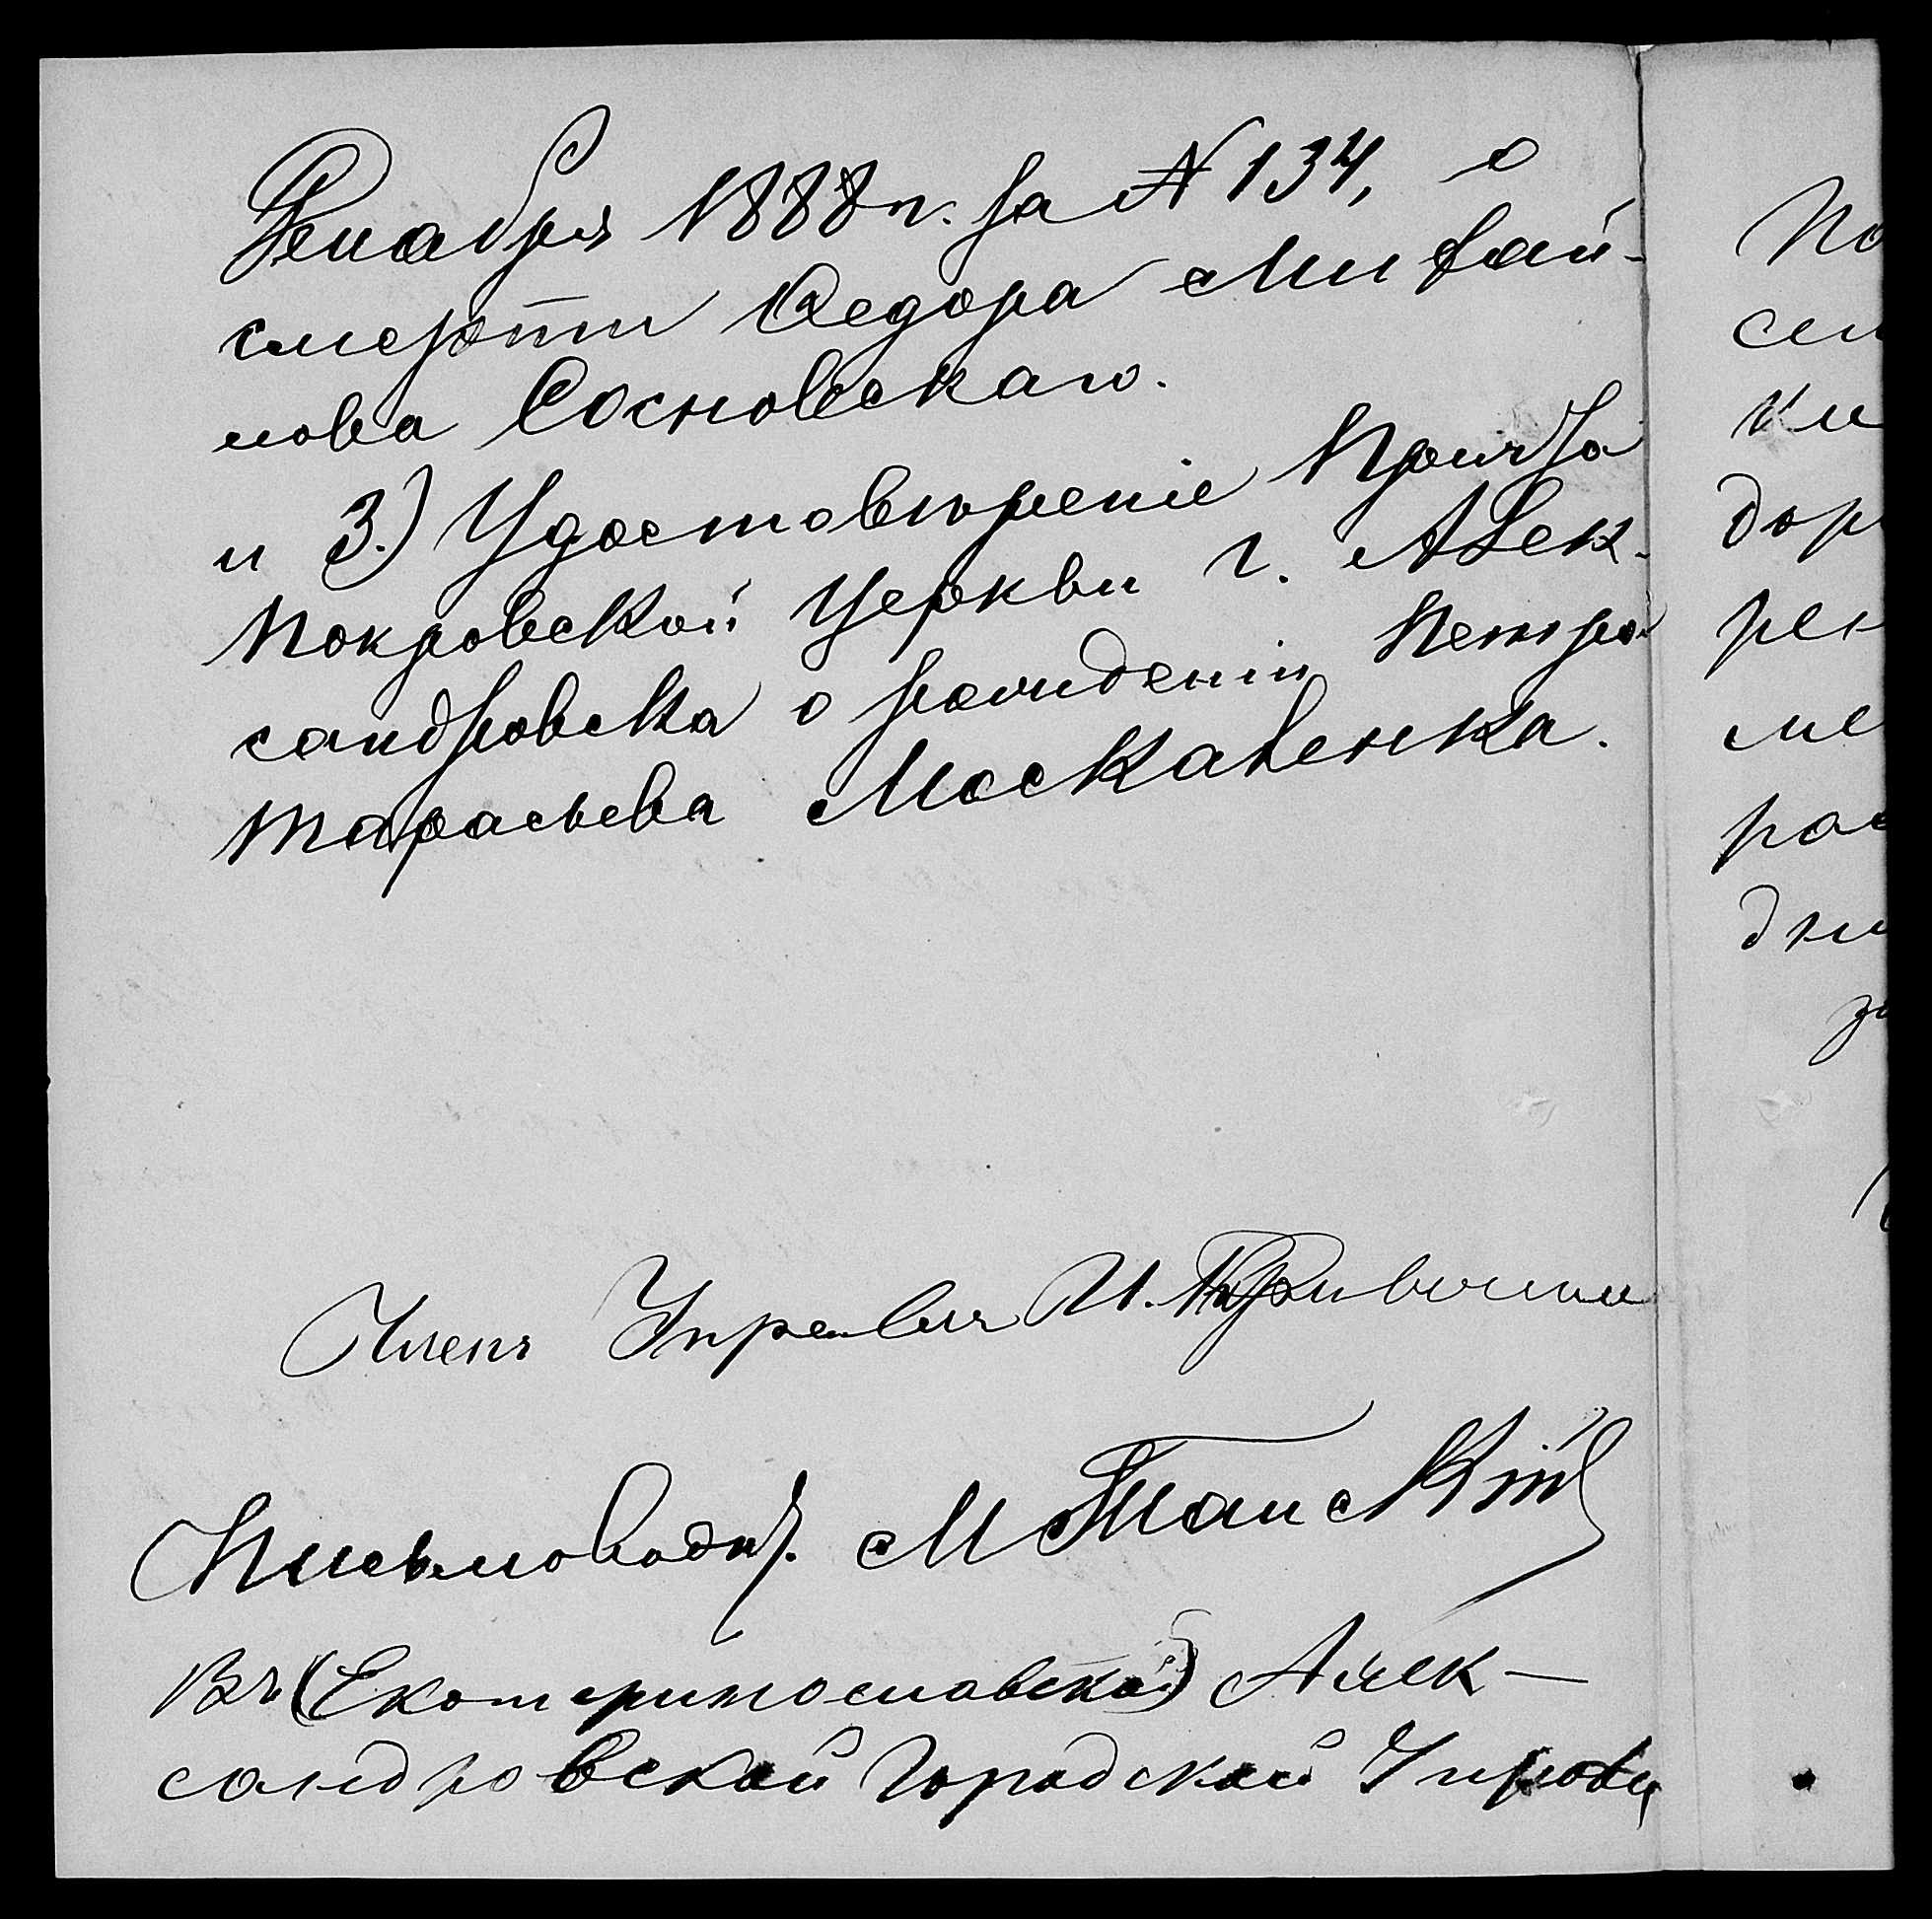 Декабря 1888 г. за № 134, о
смерти Федора Михай-
лова Сосновскаго.
и 3.) Удостовѣреніе Причта
Покровской Церкви г. Алек-
сандровска о рожденіи Петра
Тарасьева Москаленка.
Членъ Управы И.
Письмоводит. М Танскій
Въ (Екатеринославской) Алек-
сандровской Городской Управы
По
сем
ки
дор
рен
ме
рас
дни